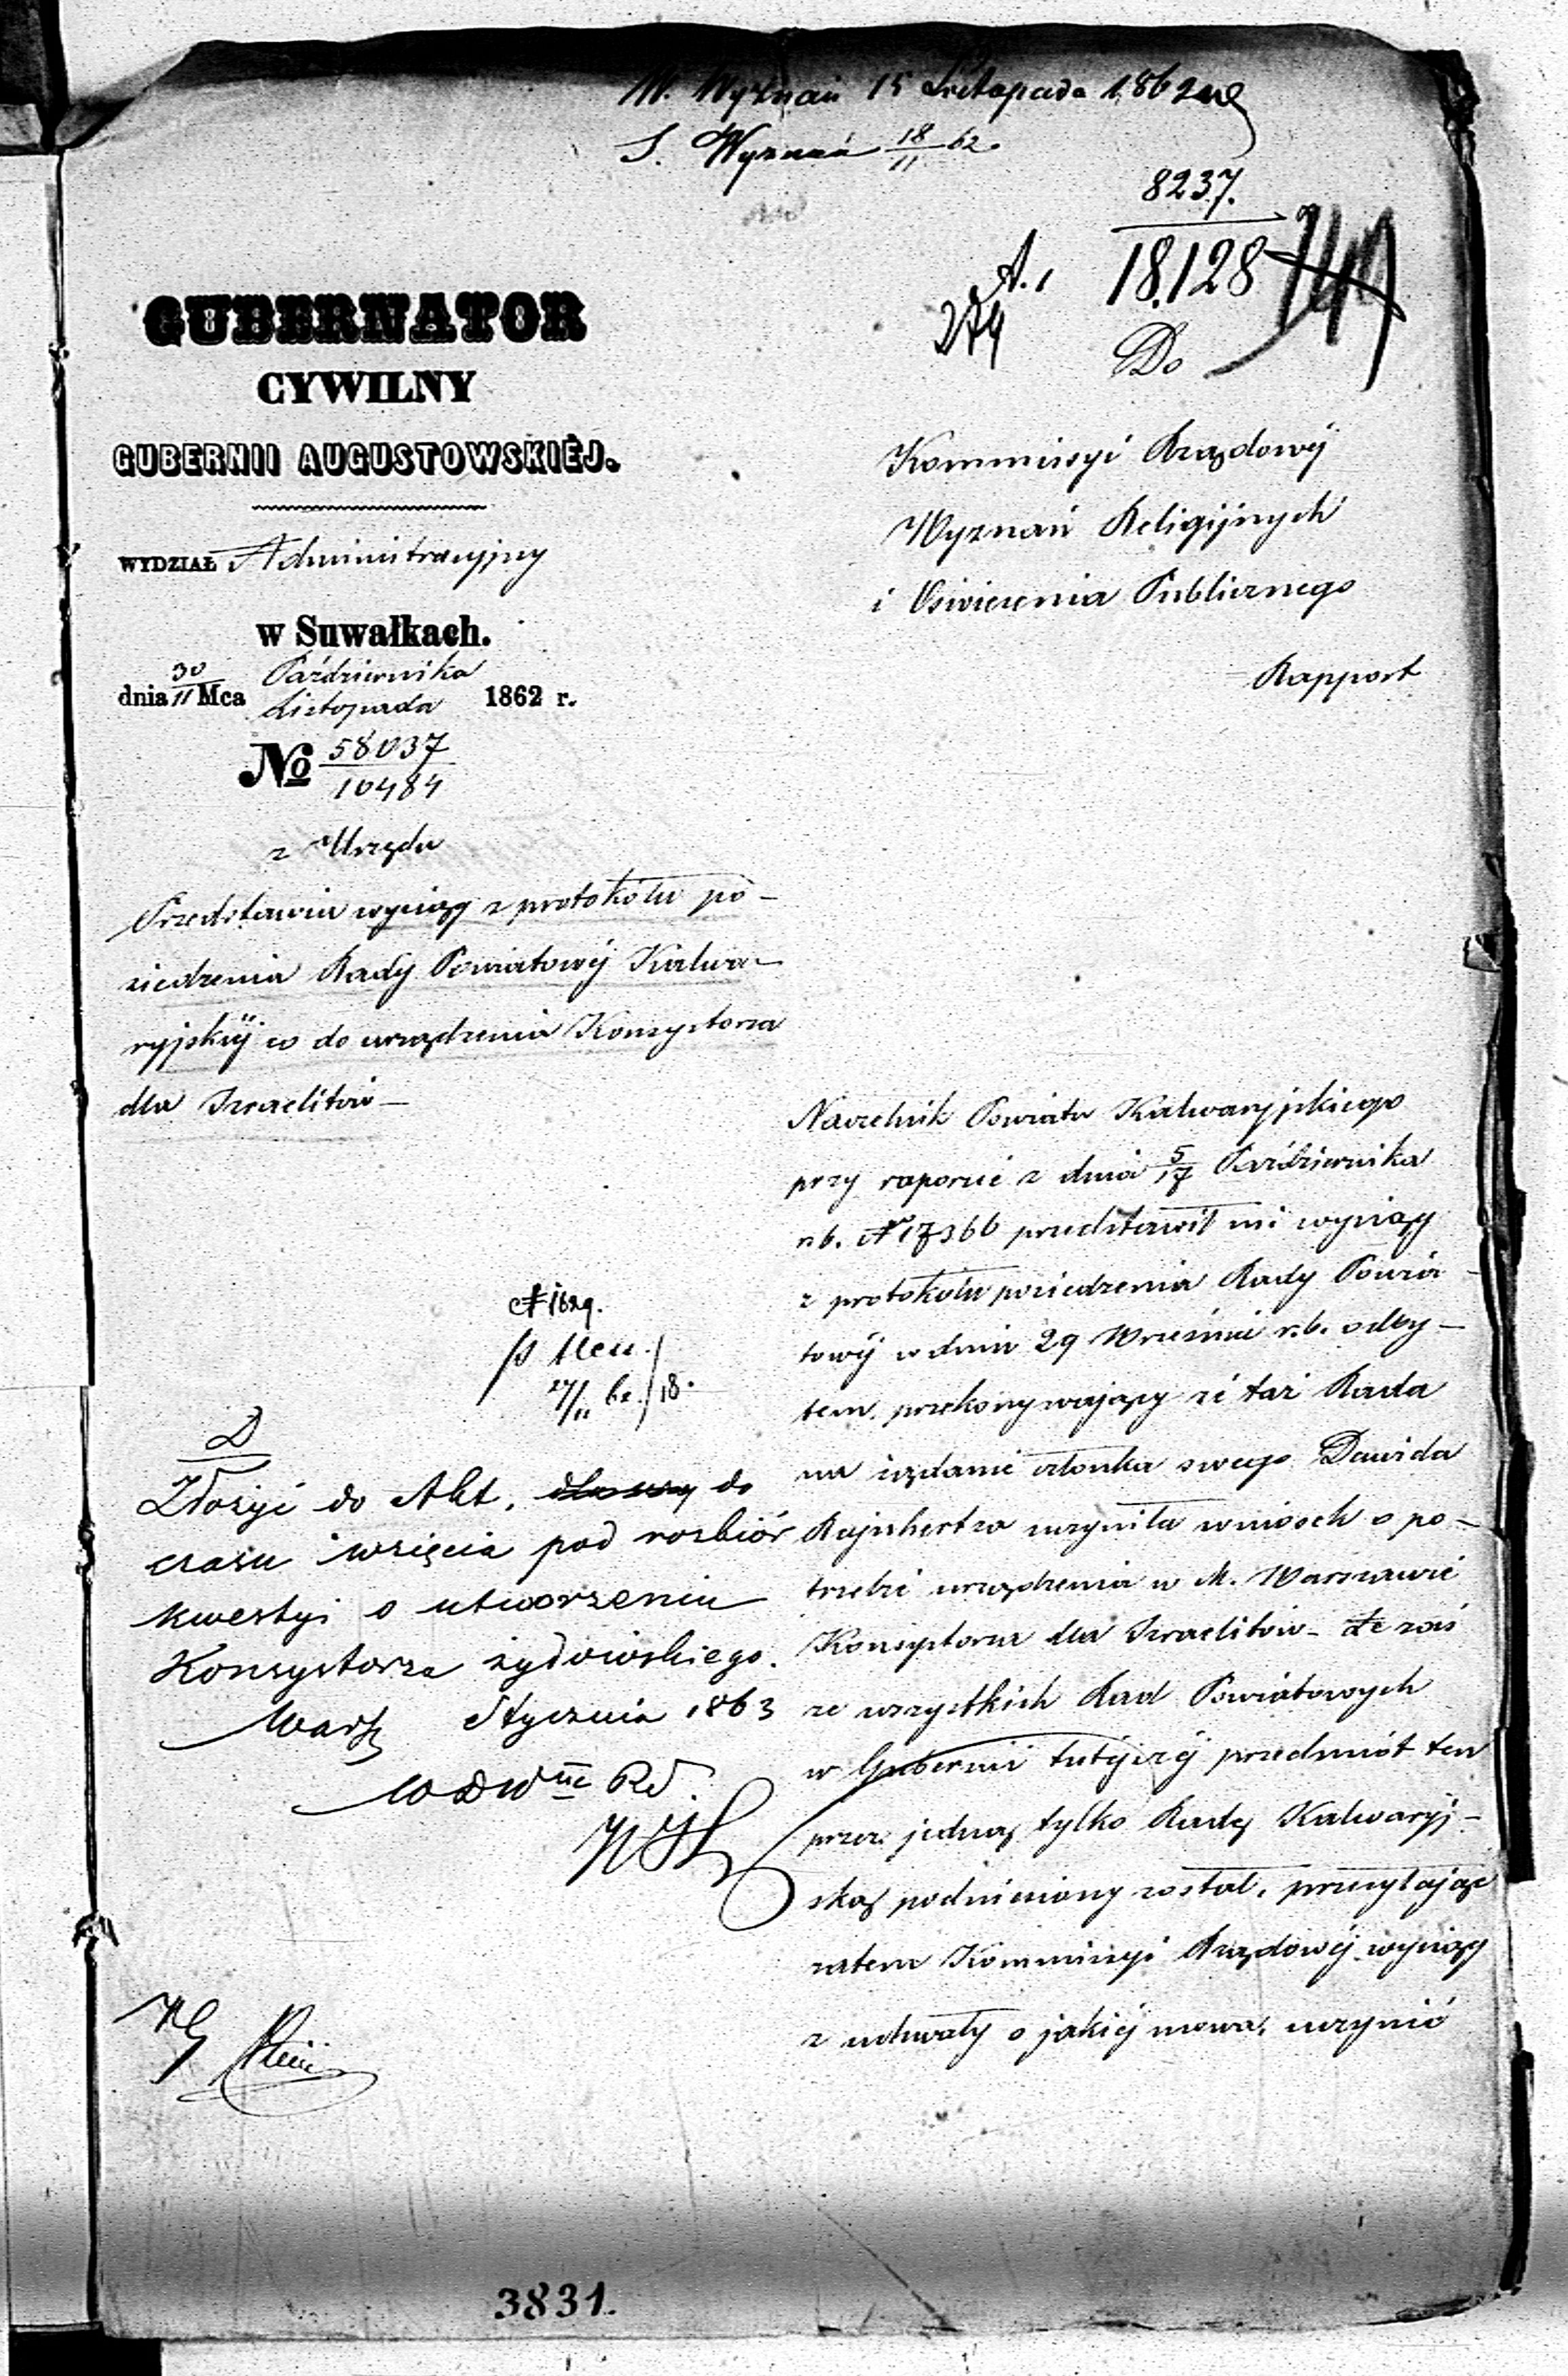 W. Wyznań 15 Listopada 1862
S. Wyznań 18/11 62.
8237.
18.128
A. 1
274
Do
GUBERNATOR
CYWILNY
GUBERNII AUGUSTOWSKIÉJ.
WYDZIAŁ Administracyjny
w Suwałkach.
dnia 30/11 Mca Października
Listopada 1862 r.
No 58037
10484
z Urzędu
Przedstawia wyciąg z protokółu po-
siedzenia Rady Powiatowéj Kalwa-
ryjskiéj co do urządzenia Konsystorza
dla Izraelitów —
Kommissyi Rządowéj
Wyznań Religijnych
i Oświecenia Publicznego
Rapport
Naczelnik Powiatu Kalwaryjskiego
przy raporcie z dnia 5/17 Października
rb. N 17366 przedstawił mi wyciąg
z protokółu posiedzenia Rady Powia-
towéj w dniu 29 Wrześniu r.b. odby-
tem, przekonywający że taż Rada
na żądanie członka swego Dawida
Rajnhertza uczyniła wniosek o po-
trzebie urządzenia w M. Warszawie
Konsystorza dla Izraelitów — Że zaś
ze wszystkich Rad Powiatowych
w Gubernii tutéjszéj przedmiot ten
przez jedną tylko Radę Kalwaryj-
ską podniesiony został, przesyłając
zatem Kommissyi Rządowéj wyciąg
z uchwały o jakiéj mowa, uczynić
N 1629.
27/11 62. 18.
D
Złożyć do Akt, do
czasu wzięcia pod rozbiór
kwestyi o utworzeniu
Konsystorza żydowskiego.
Warsz Stycznia 1863
3831.